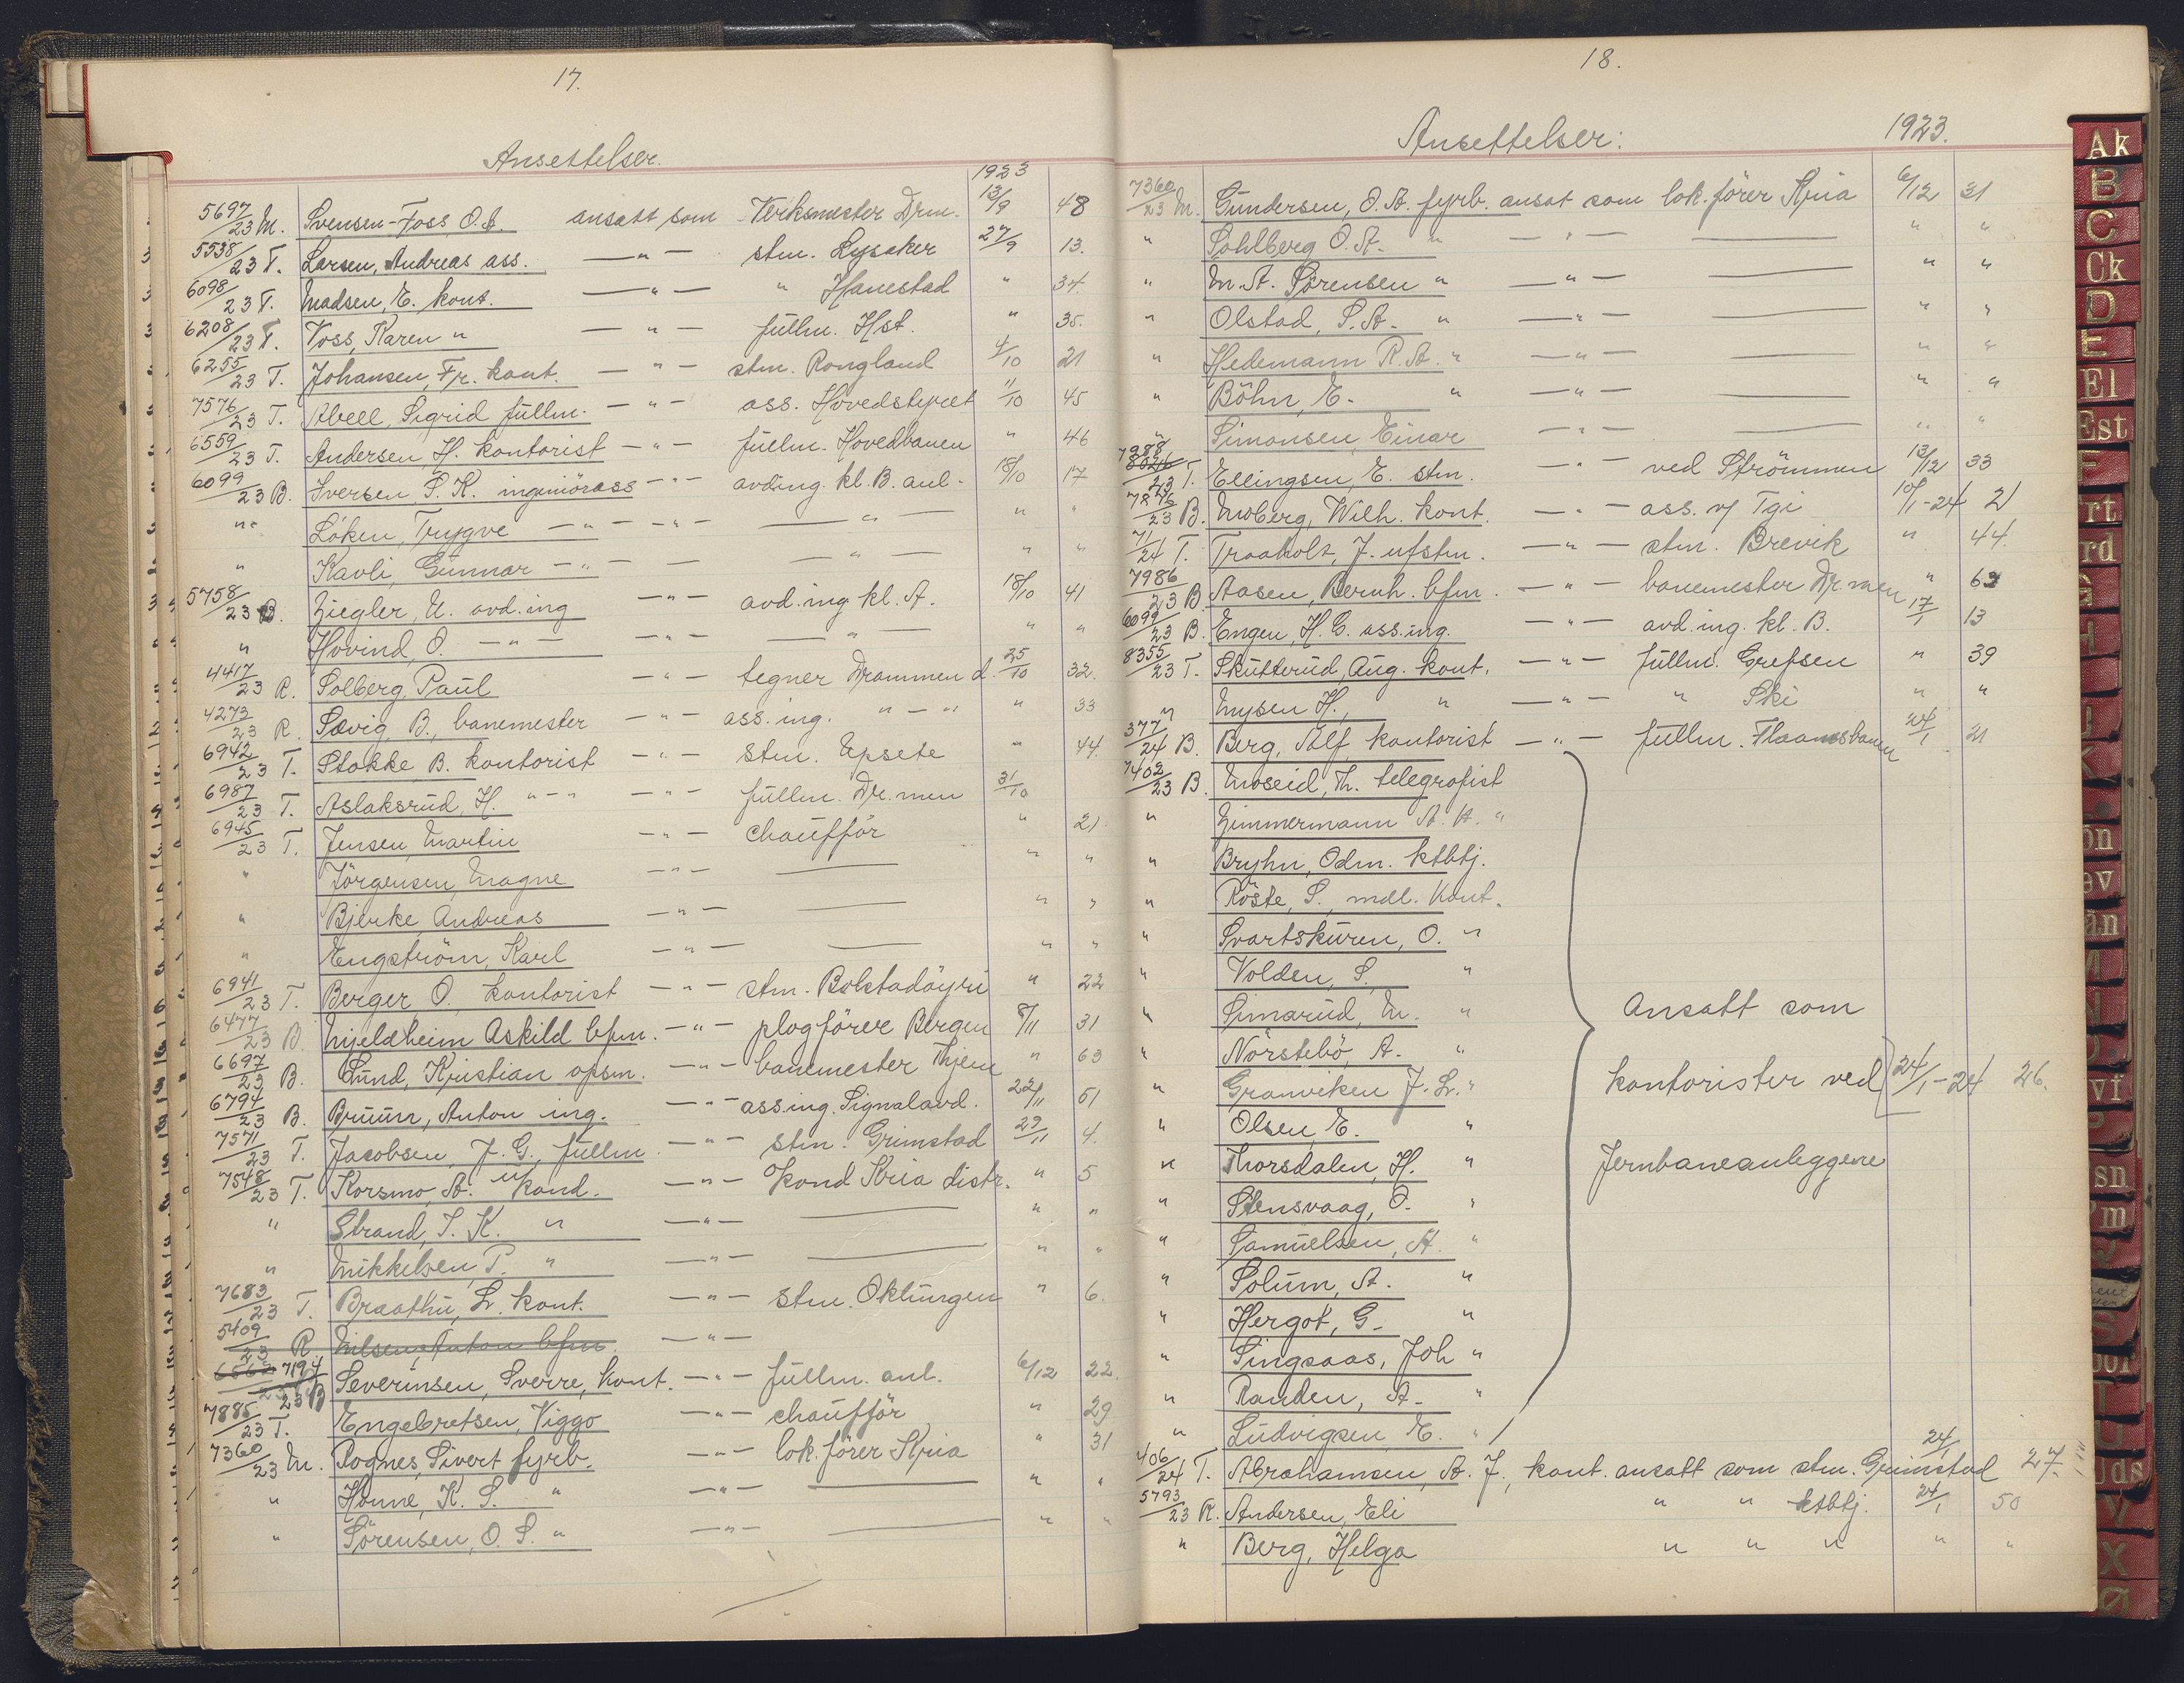 17.
Ansettelser.
1923
5697/23 M. Svensen-Foss, O.A. ansatt som Verksmester Drm. 13/9 48
5538/23 T. Larsen, Andreas ass. —"— stm. Lysaker 27/9 13.
6098/23 T. Madsen, E. kont. —"— " Hanestad " 34.
6208/23 T. Voss, Karen " —"— fullm. Hst. " 35.
6255/23 T. Johansen, Fr. kont. —"— stm. Rongland 4/10 21
7576/23 T. Abell, Sigrid fullm. —"— ass. Hovedstyret 11/10 45
6559/23 T. Andersen, H. kontorist —"— fullm. Hovedbanen " 46
6099/23 B. Iversen S. K. ingeniörass —"— avding. kl. B. anl. 18/10 17
" Löken, Trygve —"— —"— —"— " "
" Kavli, Gunnar —"— — —"— " "
5758/23 B. Ziegler, U. avd.ing —"— avd.ing kl. A. 18/10 41
" Hovind, O. —"— —"— —"— " "
4417/23 R. Solberg Paul —"— tegner Drammen d. 25/10 32.
4273/23 R. Sævig, B., banemester —"— ass.ing. "—" " 33
6942/23 T. Stokke B. kontorist —"— stm. Upsete " 44.
6987/23 T. Aslaksrud, H. "—" —"— fullm. Dr.men 31/10
6945/23 T. Jensen, Martin —"— chauffør " 21
" Jörgensen, Magne —"— —— " "
" Bjerke, Andreas —"— —— " "
" Engström, Karl —"— —— " "
6941/23 T. Berger, O. kontorist —"— stm. Bolstadöyri " 22
6477/23 B. Mjeldheim Askild bfm. —"— plogförer Bergen 8/11 31
6697/23 B. Lund, Kristian opsm. —"— banemester Thjem " 63
6794/23 B. Bruun, Anton ing. —"— ass.ing. Signalavd. 22/11 51
7571/23 T. Jacobsen, J. G., fullm. —"— stm. Grimstad 29/11 4.
7548/23 T. Korsmo A. ukond. —"— Kond Kria distr. " 5
" Strand, T. K. " —"— —— " "
" Mikkelsen P. " —"— —— " "
7683/23 T. Braathu, L. kont. —"— stm. Oklungen " 6.
5409/23 R Nilsen, Anton bfm. —"—
6562 7194/23 B Severinsen, Sverre, kont. —"— fullm. anl. 6/12 22.
7885/23 T. Engebretsen, Viggo —"— chauffør " 29
7360/23 M. Rognes, Sivert fyrb. —"— lok. förer Kria " 31
" Honne, K. S. " —"— —— " "
" Sörensen, O. S. " —"— —— " "
18.
Ansettelser: 1923.
7360/23 M. Gundersen, O. A. fyrb. ansat som lok. förer Kria 6/12 31
" Sohlberg O. A. " —"— —— " "
" M. A. Sörensen " —"— —— " "
" Olstad, S. A. " —"— —— " "
" Hedemann R. A. " —"— —— " "
" Böhn, E. " —"— —— " "
" Simonsen, Einar —"— —— " "
7988 8026/23 T. Ellingsen, E. stm. —"— ved Strömmen 13/12 33
7876/23 B. Moberg, Wilh. kont. —"— ass. v/ Tgi 10/1-24 21
71/24 T. Traaholt, J. ufstm. —"— stm. Brevik " 44.
7986/23 B Aasen, Bernh. bfm. —"— banemester Dr.men " 63
6099/23 B. Engen, H. C. ass.ing. —"— avd.ing. kl. B. 17/1 13
8355/23 T. Skutterud, Aug. kont. —"— fullm. Grefsen " 39
" Mysen H., " —"— " Ski " "
377/24 B. Berg, Alf kontorist —"— fullm. Flaamsbanen 24/1 21
7402/23 B. Moseid, Th. telegrafist
" Zimmermann A. H. "
" Bryhn, Odm. ktbtj.
" Röste, S., mdl. kont.
" Svartskuren, O. "
" Volden, S. "
" Simarud, M. "
" Nörstebö, A. "
" Granviken J. L. "
" Olsen, E. "
" Thorsdalen, H. "
" Stensvaag, O. "
" Samuelsen, A. "
" Solum, A. "
" Hergot, G. "
" Singsaas, Joh "
" Randen, A. "
" Ludvigsen, E. "
Ansatt som
kontorister ved 24/1-24 26.
Jernbaneanleggene
406/24 T. Abrahamsen, A. J., kont. ansatt som stm. Grimstad 24/1 27.
5793/23 R. Andersen, Eli " " ktbtj. 24/1 50
" Berg, Helga " " " " "
Ak
B
C
Ck
D
E
El
Est
F
rt
rd
G
H
J
K
ön
ev
än
M
N
O
vi
sn
m
S
T
U
Uds
V
X
Ø